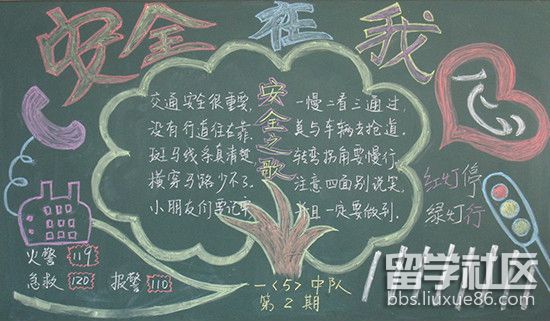 安全在我心
安全之歌
交通安全很重要,
没有行道往右靠.
斑马线条真清楚
横穿马路少不了.
小朋友们要记牢
一慢二看三通过,
莫与车辆去抢道.
转弯拐角要慢行
注意四面别说笑.
并且一定要做到.
红灯停
绿灯行
火警 119
急救 120 报警 110
一<5>中队
第2期
留学社区
bbs.liuxue86.com